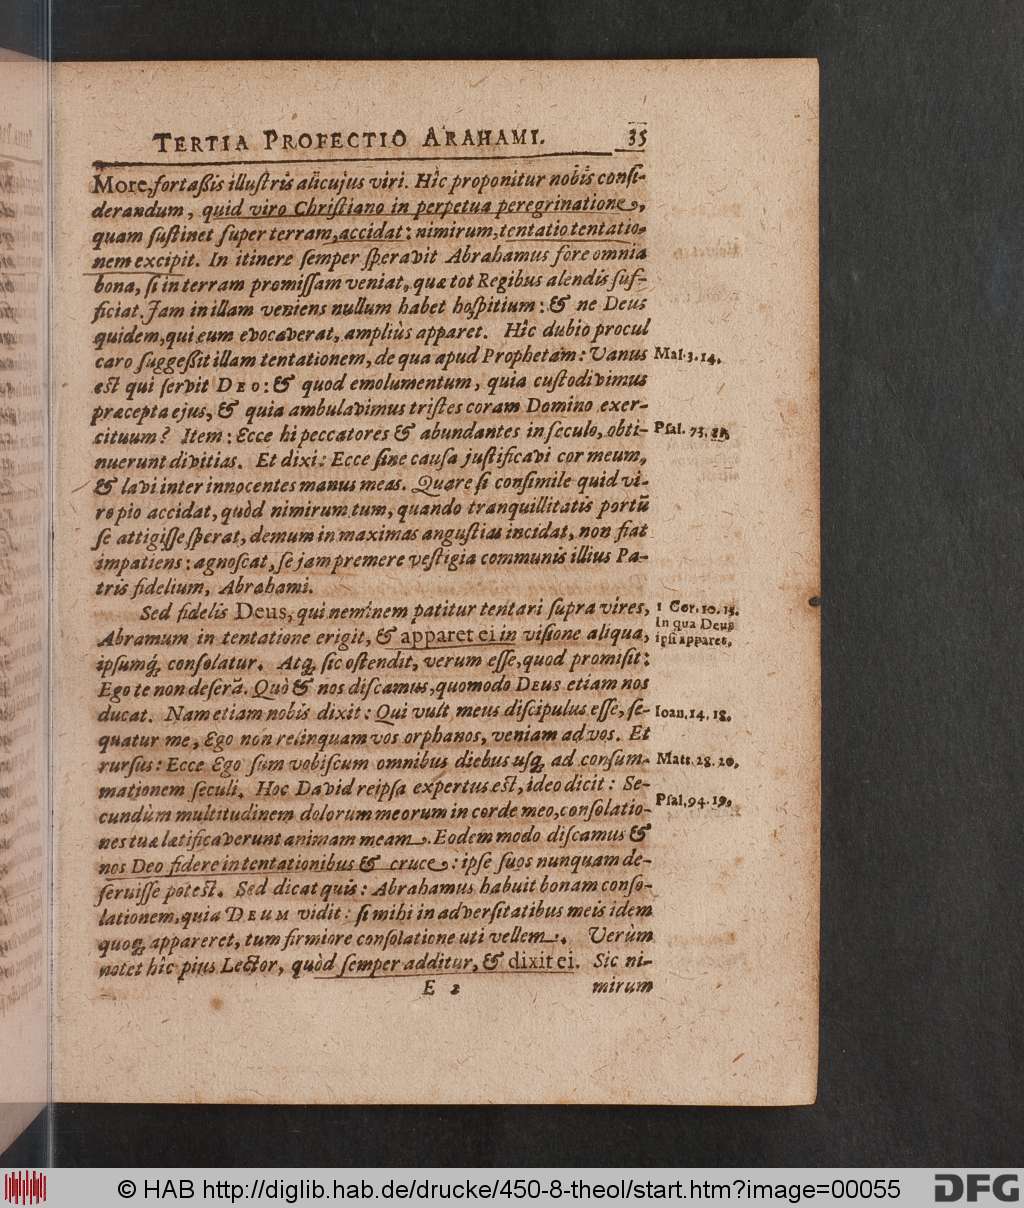 TERTIA PROFECTIO ARAHAMI. 35
More, fortaßis illuſtris alicujus viri. Hîc proponitur nobis conſi-
derandum, quid viro Chriſtiano in perpetua peregrinatione,
quam ſuſtinet ſuper terram, accidat: nimirum, tentatio tentatio-
nem excipit. In itinere ſemper ſperavit Abrahamus fore omnia
bona, ſi in terram promiſſam veniat, quæ tot Regibus alendis ſuf-
ficiat. Jam in illam veniens nullum habet hoſpitium: & ne Deus
quidem, qui eum evocaverat, ampliùs apparet. Hîc dubio procul
caro ſuggeßit illam tentationem, de qua apud Prophetam: Vanus
est qui ſervit DEO: & quod emolumentum, quia cuſtodivimus
præcepta ejus, & quia ambulavimus triſtes coram Domino exer-
cituum? Item: Ecce hi peccatores & abundantes in ſeculo, obti-
nuerunt divitias. Et dixi: Ecce ſine cauſa juſtificavi cor meum,
& lavi inter innocentes manus meas. Quare ſi conſimile quid vi-
ro pio accidat, quòd nimirum tum, quando tranquillitatis portũ
ſe attigiſſe ſperat, demum in maximas anguſtias incidat, non fiat
impatiens: agnoſcat, ſe jam premere veſtigia communis illius Pa-
tris fidelium, Abrahami.
Sed fidelis Deus, qui neminem patitur tentari ſupra vires,
Abramum in tentatione erigit, & apparet ei in viſione aliqua,
ipſumq́; conſolatur. Atq; ſic oſtendit, verum eſſe, quod promiſit:
Ego te non deſerã. Quò & nos diſcamus, quomodo DEUS etiam nos
ducat. Nam etiam nobis dixit: Qui vult meus diſcipulus eſſe, ſe-
quatur me, Ego non relinquam vos orphanos, veniam ad vos. Et
rurſus: Ecce Ego ſum vobiſcum omnibus diebus uſq; ad conſum-
mationem ſeculi. Hoc David reipſa expertus est, ideo dicit: Se-
cundùm multitudinem dolorum meorum in corde meo, conſolatio-
nes tuæ lætificaverunt animam meam. Eodem modo diſcamus &
nos Deo fidere in tentationibus & cruce: ipſe ſuos nunquam de-
ſeruiſſe potest. Sed dicat quis: Abrahamus habuit bonam conſo-
lationem, quia DEUM vidit: ſi mihi in adverſitatibus meis idem
quoq; appareret, tum firmiore conſolatione uti vellem. Verùm
notet hîc pius Lector, quòd ſemper additur, & dixit ei. Sic ni-
E 2 mirum
Mal. 3. 14.
Pſal. 73.
1 Cor. 10. 13.
In qua Deus
ipſi apparet.
Ioan. 14. 18.
Matt. 28. 20.
Pſal. 94. 19.
© HAB http://diglib.hab.de/drucke/450-8-theol/start.htm?image=00055
DFG